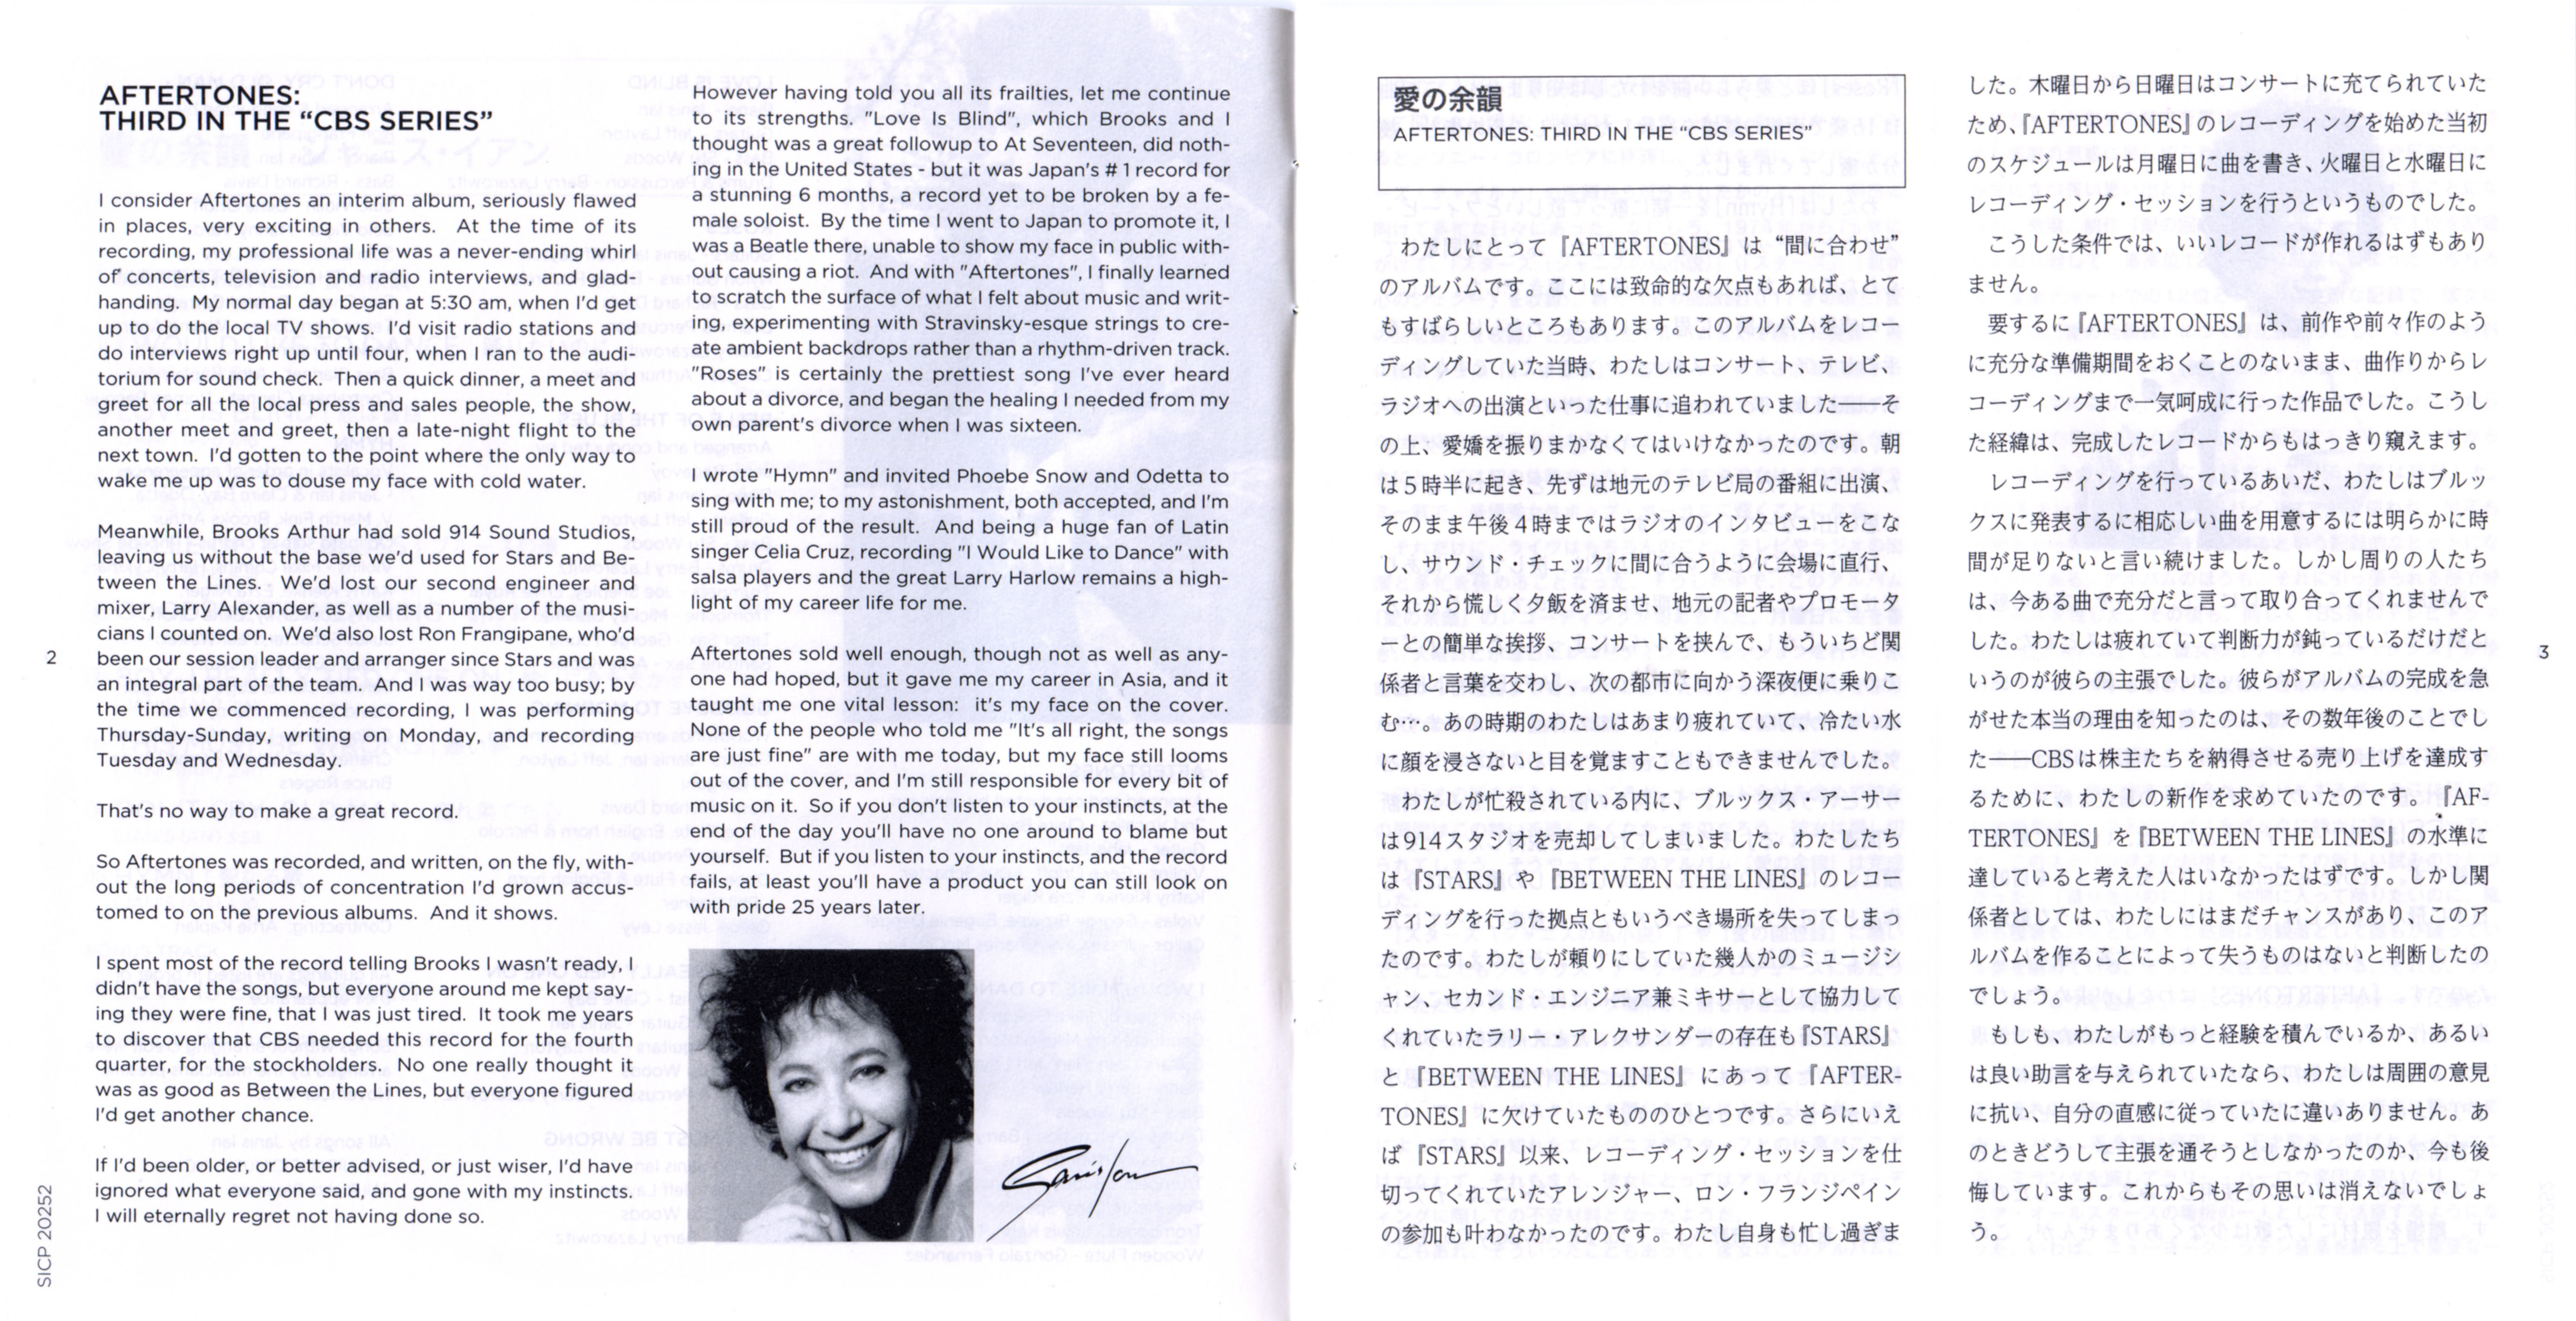 AFTERTONES:
THIRD IN THE “CBS SERIES”
I consider Aftertones an interim album, seriously flawed
in places, very exciting in others. At the time of its
recording, my professional life was a never-ending whirl
of concerts, television and radio interviews, and glad-
handing. My normal day began at 5:30 am, when I’d get
up to do the local TV shows. I’d visit radio stations and
do interviews right up until four, when I ran to the audi-
torium for sound check. Then a quick dinner, a meet and
greet for all the local press and sales people, the show,
another meet and greet, then a late-night flight to the
next town. I’d gotten to the point where the only way to
wake me up was to douse my face with cold water.
Meanwhile, Brooks Arthur had sold 914 Sound Studios,
leaving us without the base we’d used for Stars and Be-
tween the Lines. We’d lost our second engineer and
mixer, Larry Alexander, as well as a number of the musi-
cians I counted on. We’d also lost Ron Frangipane, who’d
been our session leader and arranger since Stars and was
an integral part of the team. And I was way too busy; by
the time we commenced recording, I was performing
Thursday-Sunday, writing on Monday, and recording
Tuesday and Wednesday.
That’s no way to make a great record.
So Aftertones was recorded, and written, on the fly, with-
out the long periods of concentration I’d grown accus-
tomed to on the previous albums. And it shows.
I spent most of the record telling Brooks I wasn’t ready, I
didn’t have the songs, but everyone around me kept say-
ing they were fine, that I was just tired. It took me years
to discover that CBS needed this record for the fourth
quarter, for the stockholders. No one really thought it
was as good as Between the Lines, but everyone figured
I’d get another chance.
If I’d been older, or better advised, or just wiser, I’d have
ignored what everyone said, and gone with my instincts.
I will eternally regret not having done so.
2
SICP 20252
However having told you all its frailties, let me continue
to its strengths. "Love Is Blind", which Brooks and I
thought was a great followup to At Seventeen, did noth-
ing in the United States - but it was Japan’s # 1 record for
a stunning 6 months, a record yet to be broken by a fe-
male soloist. By the time I went to Japan to promote it, I
was a Beatle there, unable to show my face in public with-
out causing a riot. And with "Aftertones", I finally learned
to scratch the surface of what I felt about music and writ-
ing, experimenting with Stravinsky-esque strings to cre-
ate ambient backdrops rather than a rhythm-driven track.
"Roses" is certainly the prettiest song I’ve ever heard
about a divorce, and began the healing I needed from my
own parent’s divorce when I was sixteen.
I wrote "Hymn" and invited Phoebe Snow and Odetta to
sing with me; to my astonishment, both accepted, and I’m
still proud of the result. And being a huge fan of Latin
singer Celia Cruz, recording "I Would Like to Dance" with
salsa players and the great Larry Harlow remains a high-
light of my career life for me.
Aftertones sold well enough, though not as well as any-
one had hoped, but it gave me my career in Asia, and it
taught me one vital lesson: it’s my face on the cover.
None of the people who told me "It’s all right, the songs
are just fine" are with me today, but my face still looms
out of the cover, and I’m still responsible for every bit of
music on it. So if you don’t listen to your instincts, at the
end of the day you’ll have no one around to blame but
yourself. But if you listen to your instincts, and the record
fails, at least you’ll have a product you can still look on
with pride 25 years later.
Janis Ian
愛の余韻
AFTERTONES: THIRD IN THE “CBS SERIES”
わたしにとって『AFTERTONES』は“間に合わせ”
のアルバムです。ここには致命的な欠点もあれば、とて
もすばらしいところもあります。このアルバムをレコー
ディングしていた当時、わたしはコンサート、テレビ、
ラジオへの出演といった仕事に追われていました――そ
の上、愛嬌を振りまかなくてはいけなかったのです。朝
は5時半に起き、先ずは地元のテレビ局の番組に出演、
そのまま午後4時まではラジオのインタビューをこな
し、サウンド・チェックに間に合うように会場に直行、
それから慌しく夕飯を済ませ、地元の記者やプロモータ
ーとの簡単な挨拶、コンサートを挟んで、もういちど関
係者と言葉を交わし、次の都市に向かう深夜便に乗りこ
む…。あの時期のわたしはあまり疲れていて、冷たい水
に顔を浸さないと目を覚ますこともできませんでした。
わたしが忙殺されている内に、ブルックス・アーサー
は914スタジオを売却してしまいました。わたしたち
は『STARS』や『BETWEEN THE LINES』のレコー
ディングを行った拠点ともいうべき場所を失ってしまっ
たのです。わたしが頼りにしていた幾人かのミュージシ
ャン、セカンド・エンジニア兼ミキサーとして協力して
くれていたラリー・アレクサンダーの存在も『STARS』
と『BETWEEN THE LINES』にあって『AFTER-
TONES』に欠けていたもののひとつです。さらにいえ
ば『STARS』以来、レコーディング・セッションを仕
切ってくれていたアレンジャー、ロン・フランジペイン
の参加も叶わなかったのです。わたし自身も忙し過ぎま
した。木曜日から日曜日はコンサートに充てられていた
ため、『AFTERTONES』のレコーディングを始めた当初
のスケジュールは月曜日に曲を書き、火曜日と水曜日に
レコーディング・セッションを行うというものでした。
こうした条件では、いいレコードが作れるはずもあり
ません。
要するに『AFTERTONES』は、前作や前々作のよう
に充分な準備期間をおくことのないまま、曲作りからレ
コーディングまで一気呵成に行った作品でした。こうし
た経緯は、完成したレコードからもはっきり窺えます。
レコーディングを行っているあいだ、わたしはブルッ
クスに発表するに相応しい曲を用意するには明らかに時
間が足りないと言い続けました。しかし周りの人たち
は、今ある曲で充分だと言って取り合ってくれませんで
した。わたしは疲れていて判断力が鈍っているだけだと
いうのが彼らの主張でした。彼らがアルバムの完成を急
がせた本当の理由を知ったのは、その数年後のことでし
た――CBSは株主たちを納得させる売り上げを達成す
るために、わたしの新作を求めていたのです。『AF-
TERTONES』を『BETWEEN THE LINES』の水準に
達していると考えた人はいなかったはずです。しかし関
係者としては、わたしにはまだチャンスがあり、このア
ルバムを作ることによって失うものはないと判断したの
でしょう。
もしも、わたしがもっと経験を積んでいるか、あるい
は良い助言を与えられていたなら、わたしは周囲の意見
に抗い、自分の直感に従っていたに違いありません。あ
のときどうして主張を通そうとしなかったのか、今も後
悔しています。これからもその思いは消えないでしょ
う。
3